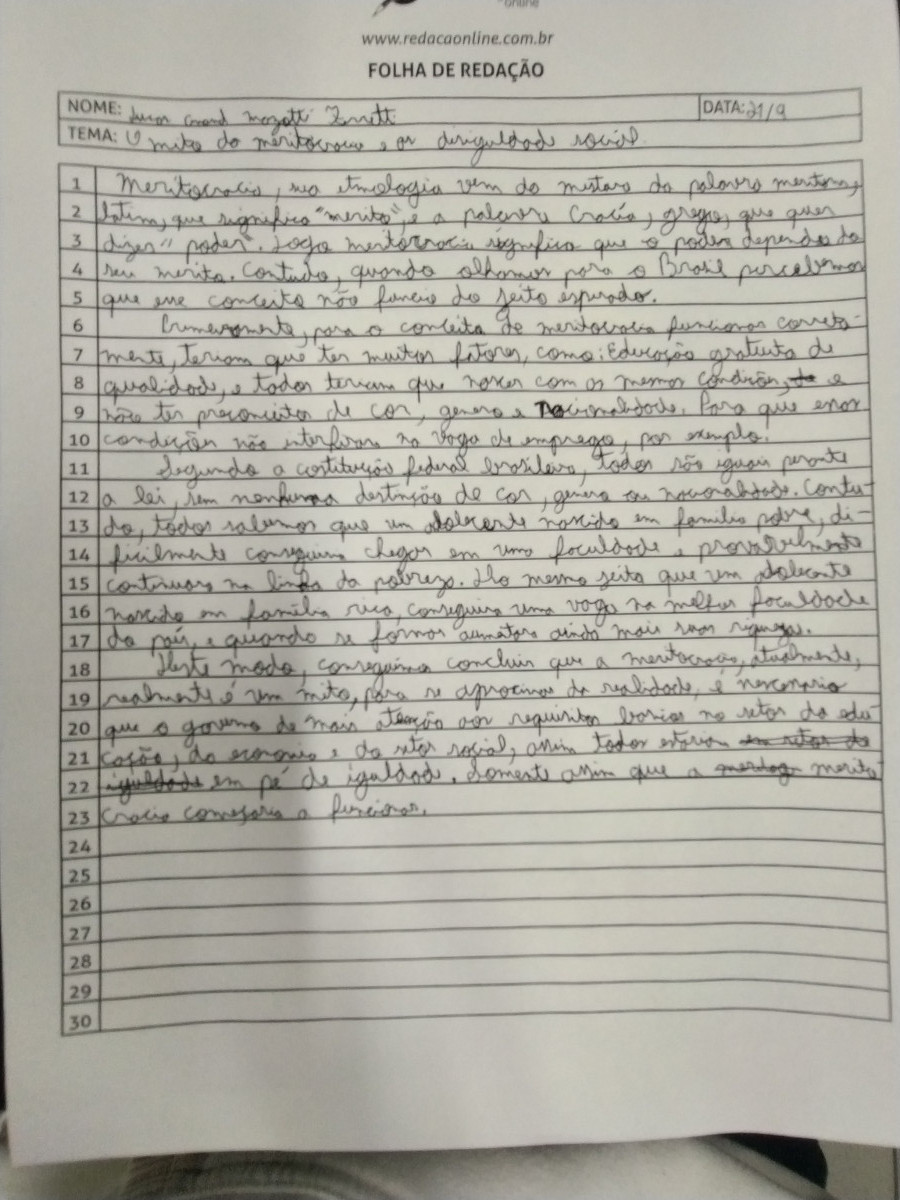 online
www.redacaonline.com.br
FOLHA DE REDAÇÃO
NOME: DATA: 21/9
TEMA: O mito da meritocracia e as disiguldade social.
1 Meritocracia, sua etmologia vem da mistura da palavra meritum,
2 latim, que significa "merito", e a palavra Cracía, grega, que quer
3 dizer "poder". Logo meritocracia significa que o poder depende do
4 seu merito. Contudo, quando olhamos para o Brasil percebemos
5 que esse conceito não funcio do jeito esperado.
6 Primeramente, para o conceito de meritocracia funcionar correta-
7 mente, teriam que ter muitos fatores, como: Educação gratuita de
8 qualidade, e todos teriam que nascer com as mesmas condições, e
9 não ter preconceitos de cor, genero e nacionalidade. Para que essas
10 condições não interfiram na vaga de emprego, por exemplo.
11 Segundo a costituição federal brasileira, todos são iguais perante
12 a lei, sem nenhuma destinção de cor, genero ou nacionalidade. Contu-
13 do, todos sabemos que um adolecente nascido em família pobre, di-
14 ficilmente conseguira chegar em uma faculdade e provavelmente
15 continuara na linha da pobreza. Do mesmo jeito que um adolecente
16 nascido em família rica, conseguira uma vaga na melhor faculdade
17 do país, e quando se formar aumentara ainda mais suas riquezas.
18 Deste modo, conseguimos concluir que a meritocracia, atualmente,
19 realmente é um mito, para se aproximar da realidade, é nescessario
20 que o governo de mais atenção aos requisitos basicos no setor da edu-
21 cação, da economia e do setor social, assim todos estariam em setor de
22 iguldade em pé de iguldade. Somente assim que a merito
23 cracia começaria a funcionar.
24
25
26
27
28
29
30